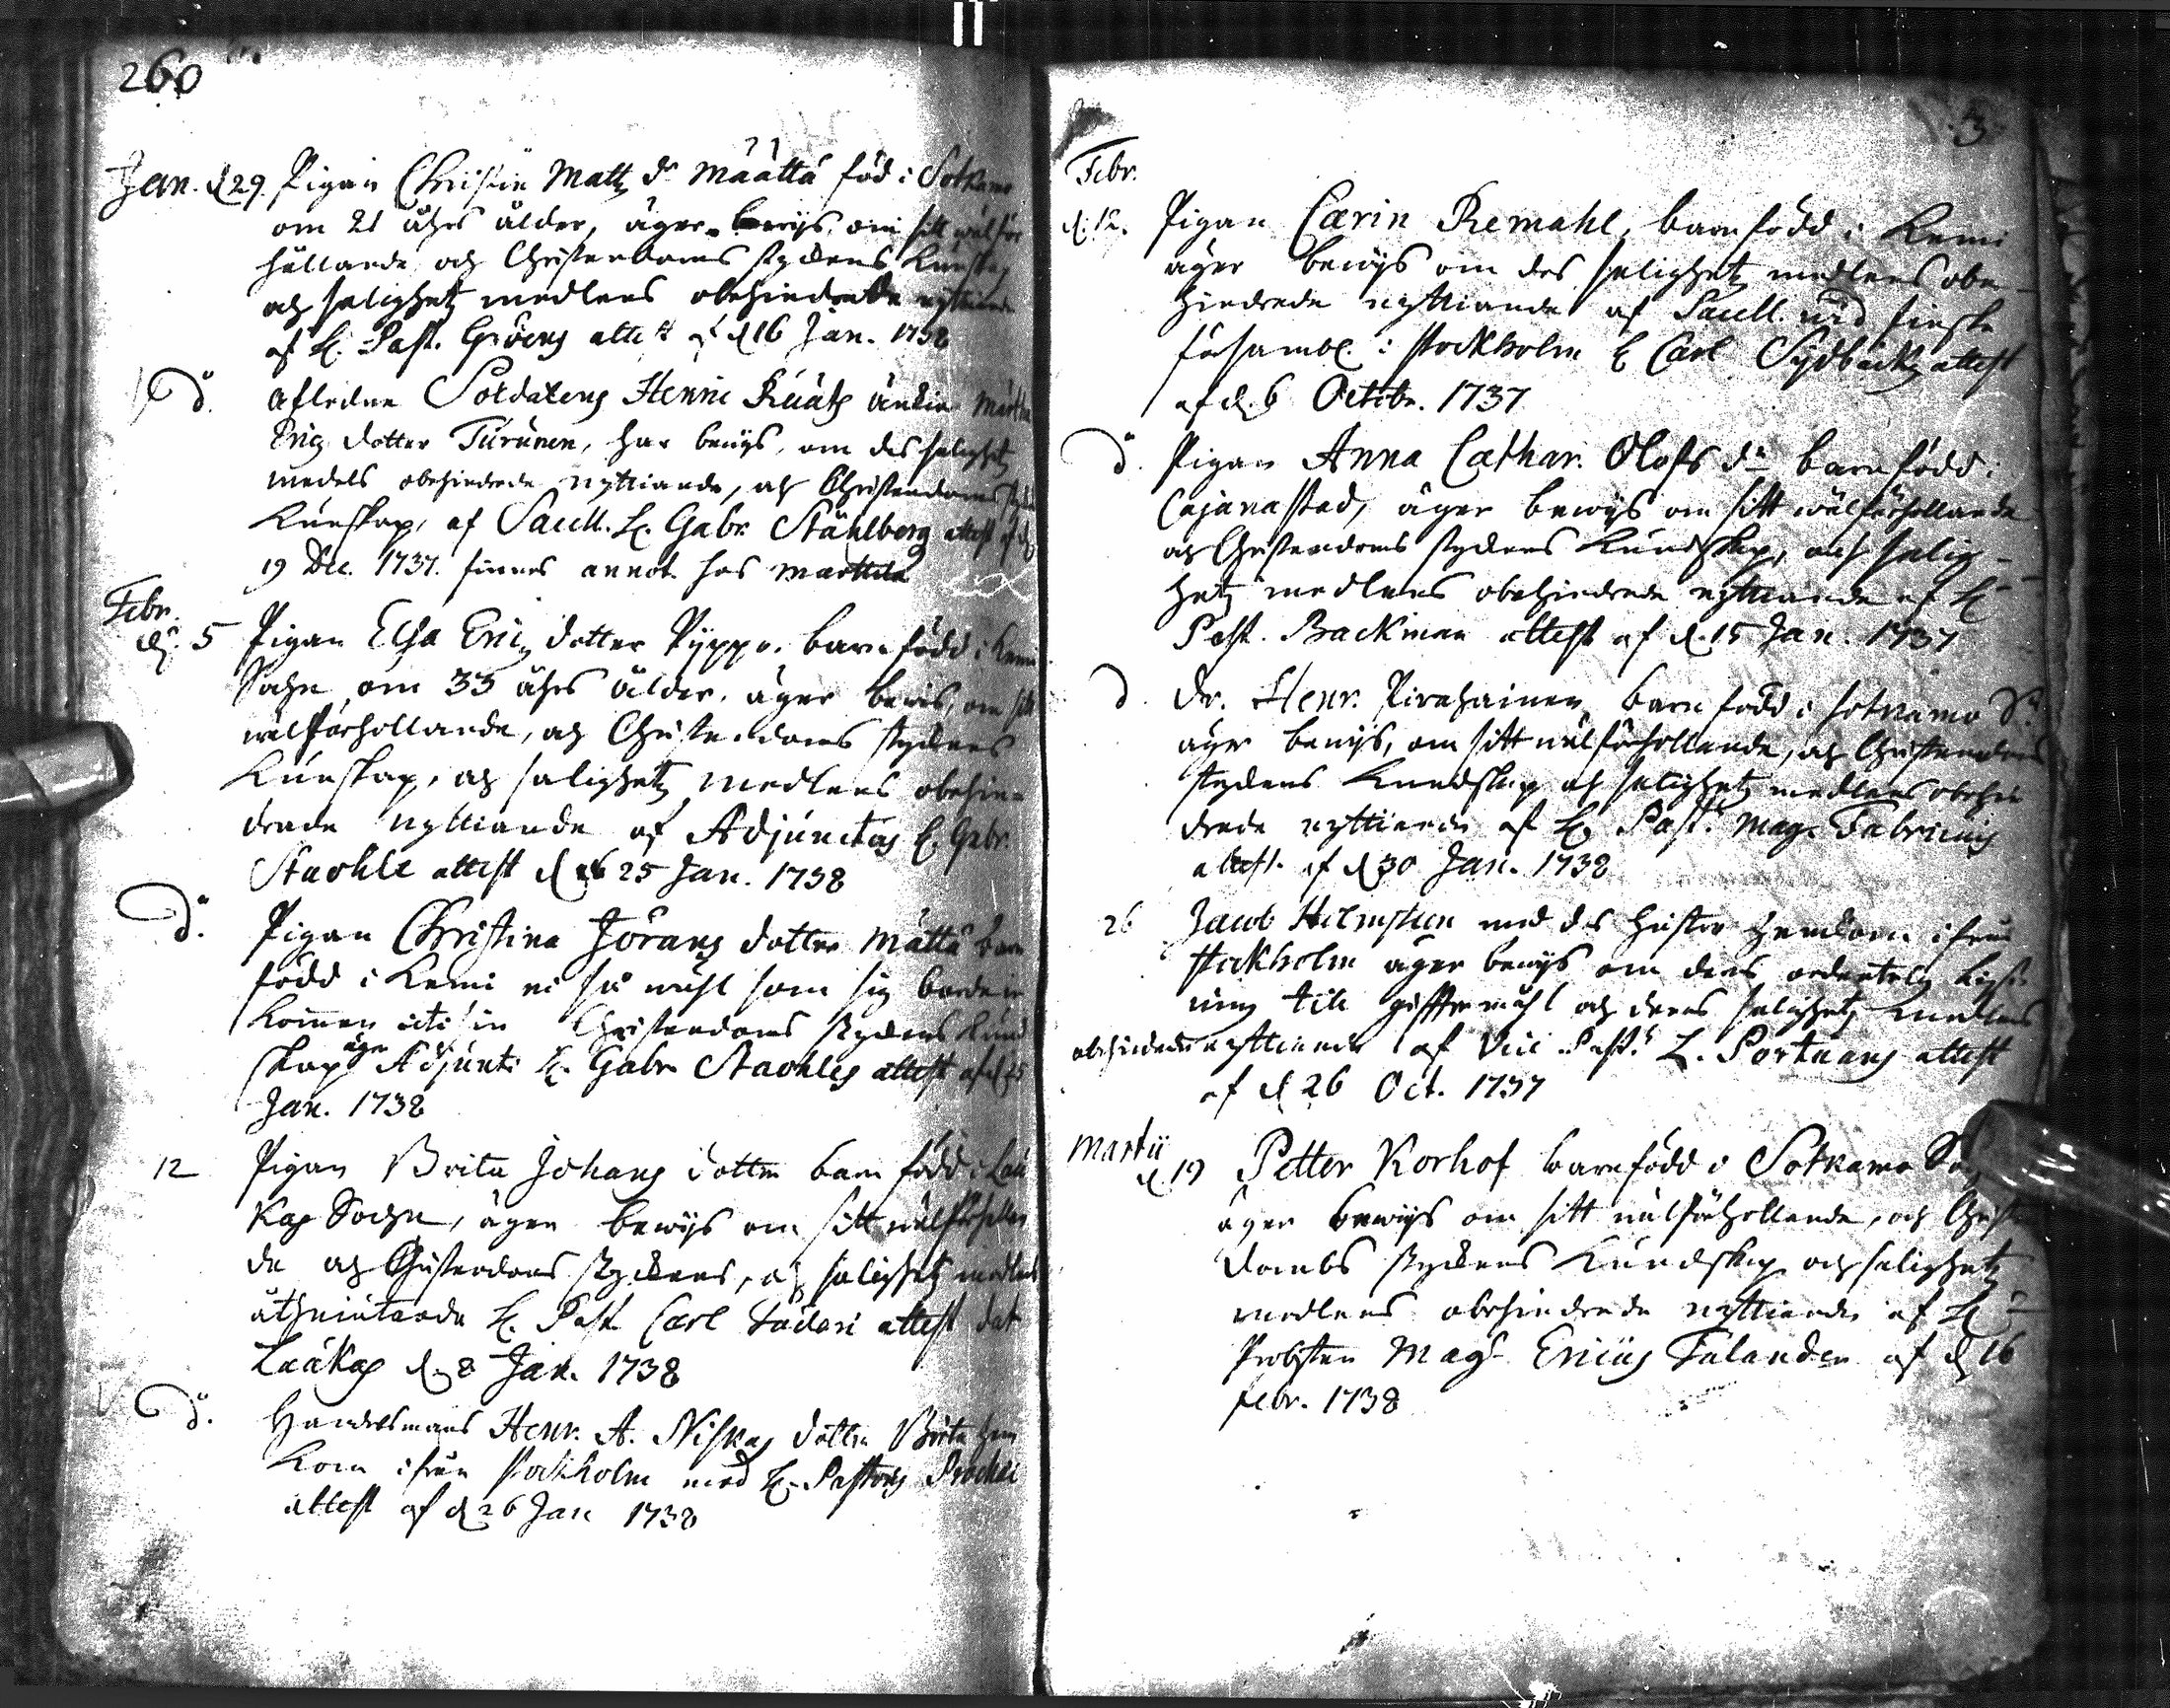 260
Jan. d 29. Pigan Christin Matts dr Määttä föd i Sotkamo
om 21 åhrs ålder, äger bewijs om sitt wälför
hållande och Christendoms styckens Kunskap
och salighetz medlens obehindrade nyttiande
af H. Past. Gröens attest af d 16 Jan. 1738
dº. Afledne Soldatens Henric Kuäts änkia Märtha
Erics dotter Turunen, har bewijs, om des salighetz
medels obehindrade nyttiande, och Christendoms styckens
Kunskap, af Sacell. H. Gabr. Ståhlberg attest af d
19 Dec. 1737. finnes annot. hos Marttila
Febr.
d. 5 Pigan Elsa Erics dotter Pyppo. barn född i Kemi
Sochn om 33 åhrs ålder. äger bewis, om sitt
wälförhollande, och Christendoms styckens
Kunskap, och salighetz medlens obehin-
drade nyttiande af Adjunctus H. Gabr.
Staohle attest d 25 Jan. 1738
dº. Pigan Christina Jörans dotter Mättä barn
född i Kemi ei så wähl som sig borde in
kommen uti sin Christendoms styckens Kund
skap äger Adjunct. H. Gabr. Staohles attest af d 25
Jan. 1738
12 Pigan Brita Johans dotter barn född i Lau
kas Sochn, äger bewijs om sitt wälförhållan
de och Christendoms styckens, och salighetz medlens
åthniutande H. Past. Carl attest dat
Laukas d. 8 Jan. 1738
dº. Handelsmans Henr. A. Niskas dotter Brita hem
kom ifrån Stockholm med H. Pastoris
attest af d 26 Jan 1738
3
Febr.
d. 12. Pigan Carin Remahl, barn född i Kemi
äger bewijs om des salighetz medlens obe-
hindrade nyttiande af Sacell. wid finska
församl. i Stockholm H Carl Sydbäcks attest
af d. 6 Octobr. 1737
dº. Pigan Anna Cathar. Olofs dr barn född i
Cajana stad, äger bewijs om sitt wälförhollande
och Christendoms styckens Kundskap, och salig-
hetz medlens obehindrade nyttiande af H
Past. Backman attest af d. 15 Jan. 1737
d Dr. Henr. Pirahainen barn född i Sotkamo Sn
äger bewijs, om sitt wälförhollande, och Christendoms
styckens Kundskap och salighetz medlens obehin
drade nyttiande af H. Past. Mag. Fabricius
attest. af d 30 Jan. 1738
26 Jacob Helmsteen med des hustru hemkom ifrån
Stockholm äger bewijs om deras ordentelig lys
ning till gifftermåhl och deras salighetz medlens
obehindrade nyttiande af Vice Past. L. Portuans attest
af d 26 Oct. 1737
Martii
d. 19 Petter Korhof barn född i Sotkamo
äger bewijs om sitt wälförhollande, och Christen
dombs styckens Kundskap och salighetz
medlens obehindrade nyttiande af H
Probsten Magr Ericus Falander af d 16
febr. 1738